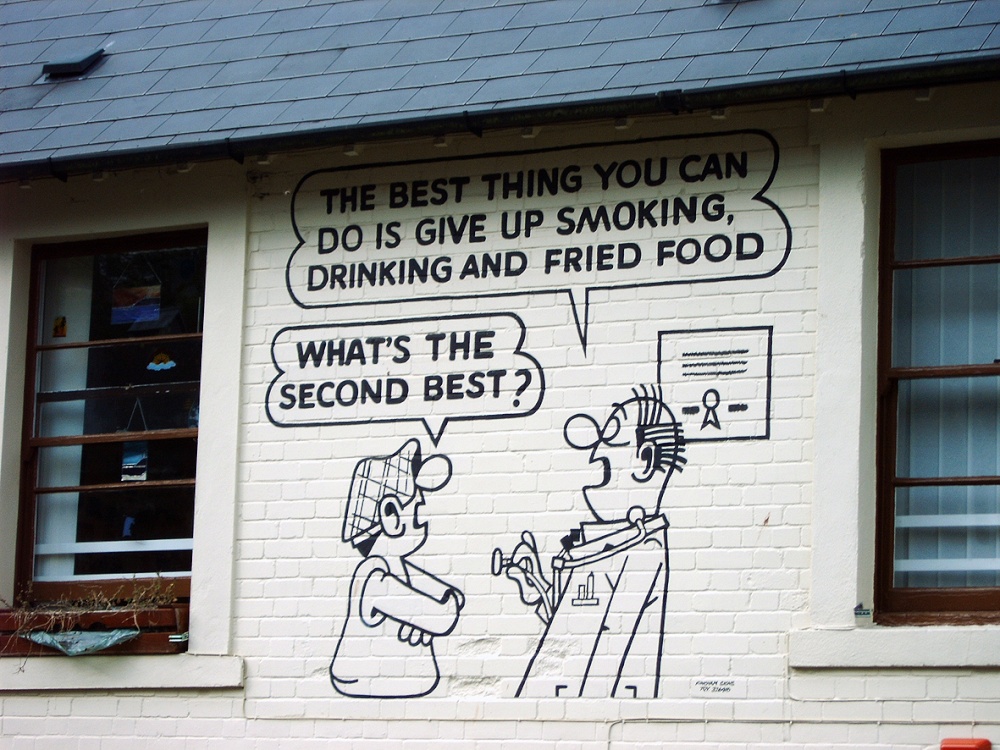 THE BEST THING YOU CAN
DO IS GIVE UP SMOKING,
DRINKING AND FRIED FOOD
WHAT'S THE
SECOND BEST?